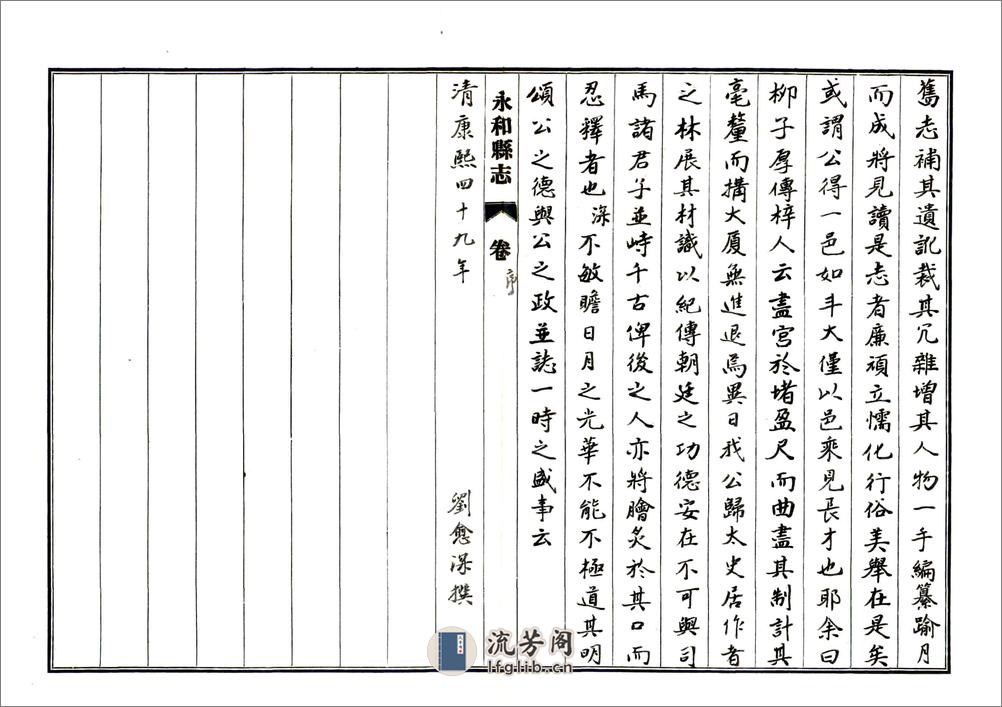 舊志補其遺訛裁其冗雜增其人物一手編纂踰月
而成將見讀是志者廉頑立懦化行俗美舉在是矣
或謂公得一邑如斗大僅以邑乘見長才也耶余曰
柳子厚傳梓人云盡宮於堵盈尺而曲盡其制計其
毫釐而搆大厦無進退焉異日我公歸太史居作者
之林展其材識以紀傳朝廷之功德安在不可與司
馬諸君子並峙千古俾後之人亦將膾炙於其口而
忍釋者也 深不敏瞻日月之光華不能不極道其明
頌公之德與公之政並誌一時之盛事云
永和縣志 卷 序
清康熙四十九年 劉愈深撰
流芳阁
lfglib.cn